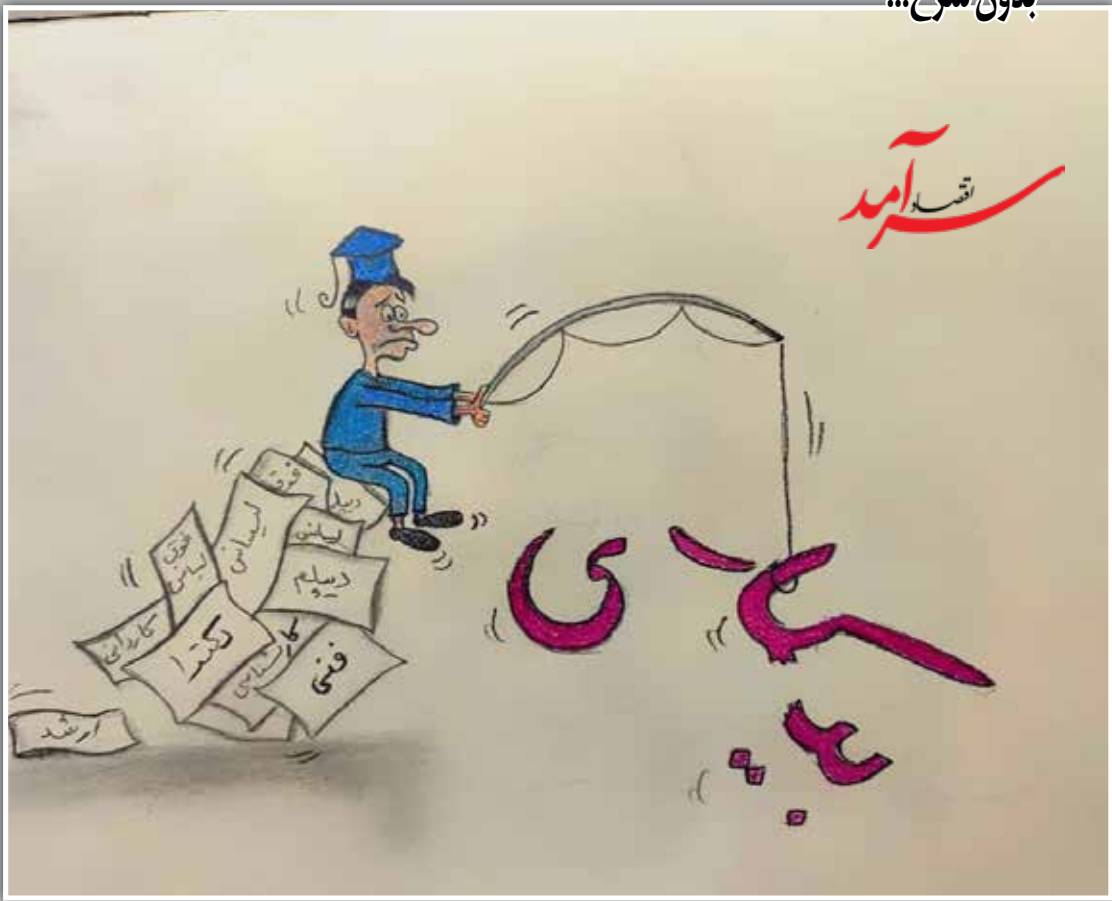 بدون شرح...
اقتصاد سرآمد
فوق
لیسانس
لیسانس
فوق لیسانس
دیپلم
کاردانی
دکترا
کارشناسی
فنی
ارشد
بیکاری